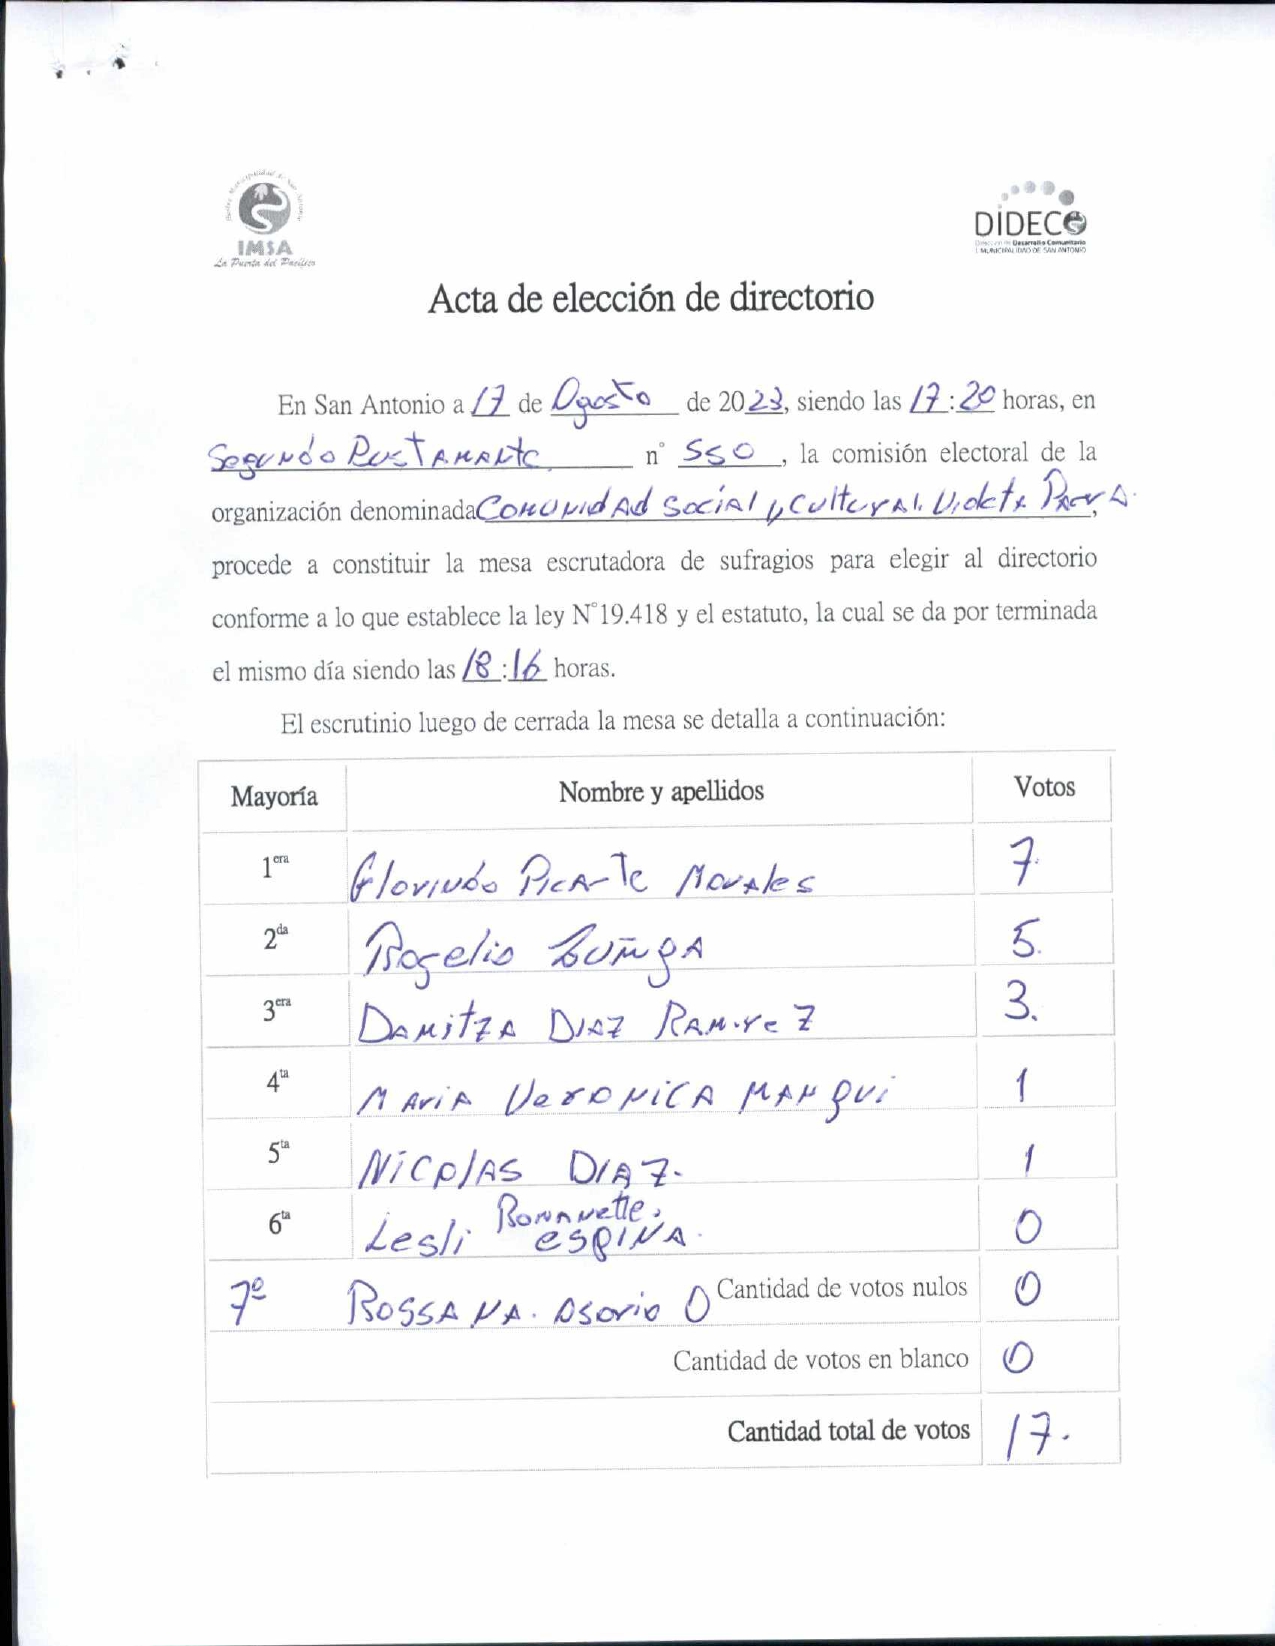 IMSA
La Puerta del Pacífico
DIDECO
Dirección de Desarrollo Comunitario
I. MUNICIPALIDAD DE SAN ANTONIO
Acta de elección de directorio
En San Antonio a 17 de Agosto de 2023, siendo las 17:20 horas, en
Segundo Bustamante n° 550, la comisión electoral de la
organización denominada Comunidad Social y Cultural Violeta Parra,
procede a constituir la mesa escrutadora de sufragios para elegir al directorio
conforme a lo que establece la ley N°19.418 y el estatuto, la cual se da por terminada
el mismo día siendo las 18:16 horas.
El escrutinio luego de cerrada la mesa se detalla a continuación:
Mayoría Nombre y apellidos Votos
1era Glorindo Picarte Morales 7.
2da Rogelio Zuñga 5.
3era Damitza Diaz Ramirez 3.
4ta Maria Veronica Manqui 1
5ta Nicolas Diaz. 1
6ta Lesli espina. 0
7º Rossana. Osorio 0 Cantidad de votos nulos 0
Cantidad de votos en blanco 0
Cantidad total de votos 17.